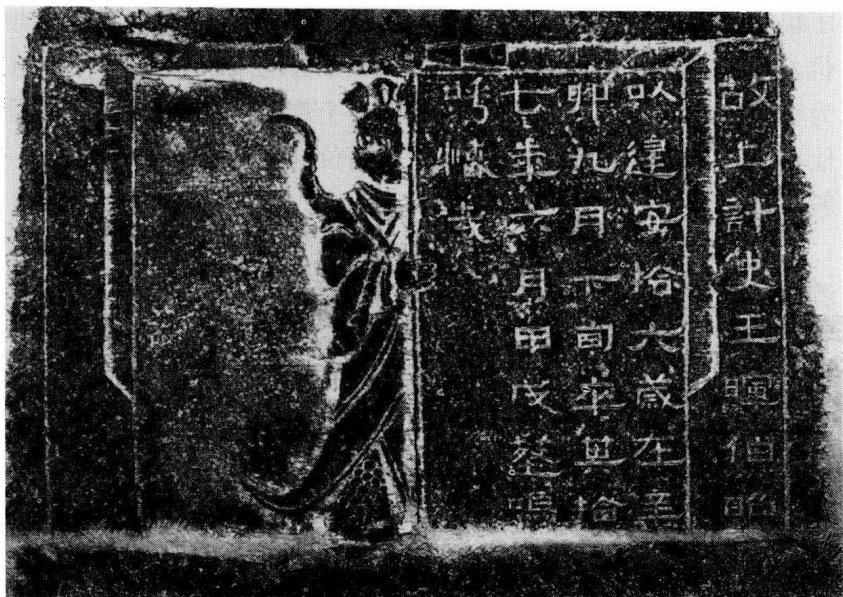 故上計史王暉伯昭
以建安拾六歲在辛
卯九月下旬卒其拾
七年六月甲戌塟嗚
呼痛哉